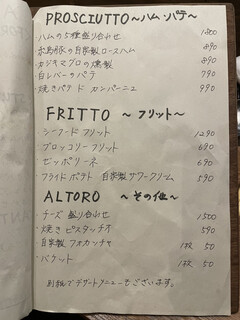 PROSCIUTTO ～ハム・パテ～
・ハムの5種盛り合わせ 1,800
・赤鳥豚の自家製ロースハム 890
・カジキマグロの燻製 890
・白レバーのパテ 790
・焼きパテ ド カンパーニュ 990
FRITTO ～フリット～
・シーフード フリット 1290
・ブロッコリー フリット 690
・ゼッポリーネ 690
・フライド ポテト 自家製 サワークリーム 590
ALTORO ～その他～
・チーズ 盛り合わせ 1500
・焼き ピスタッチオ 590
・自家製 フォカッチャ 1枚 50
・バケット 1枚 50
別紙でデザートメニューもございます。